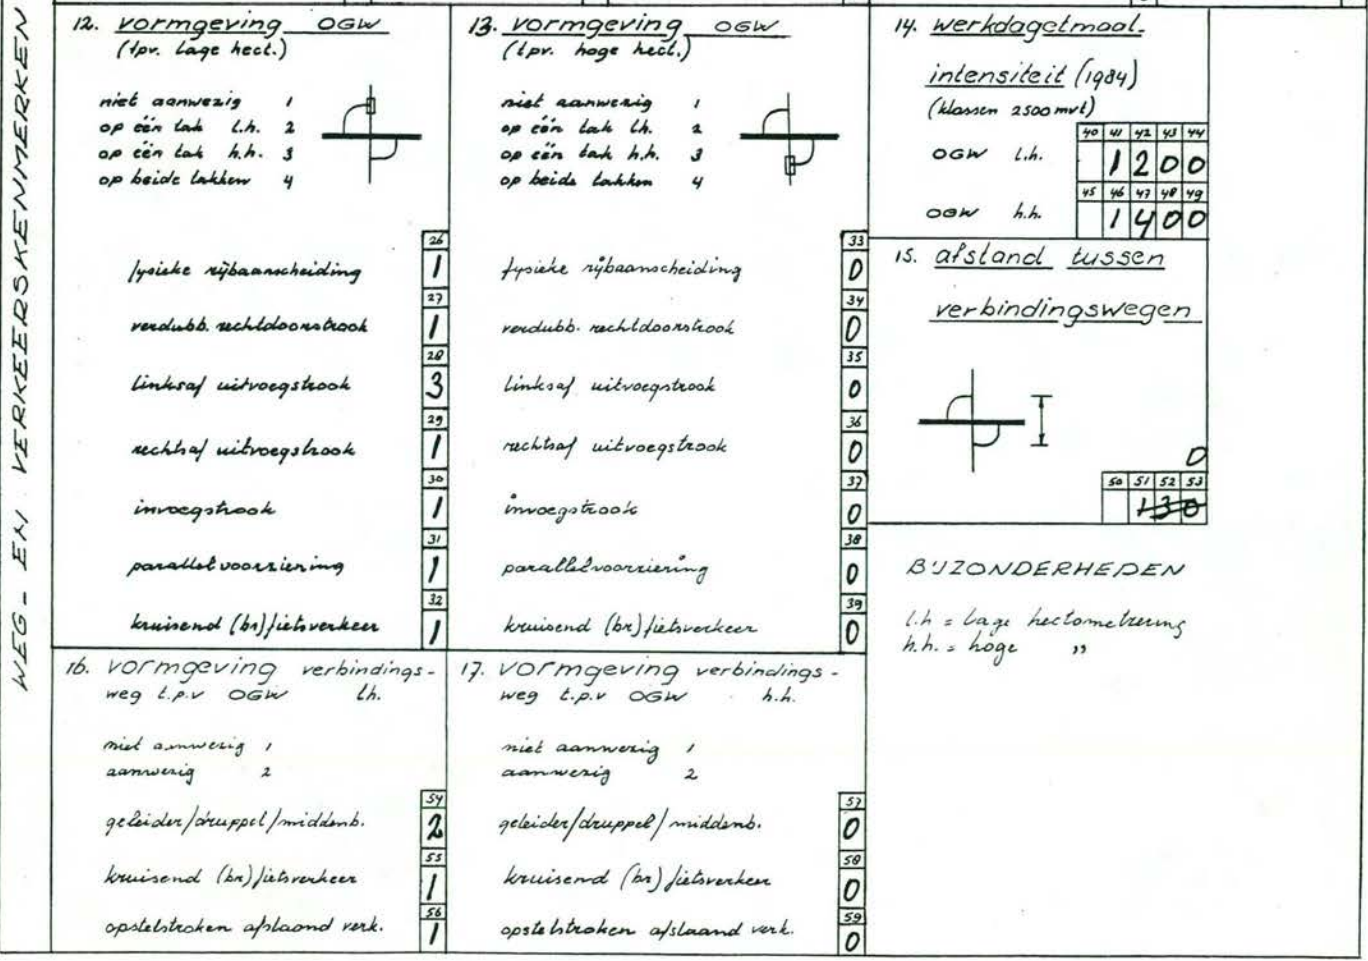 WEG- EN VERKEERSKENMERKEN
12. vormgeving OGW
(tpv. lage hect.)
niet aanwezig 1
op één tak l.h. 2
op één tak h.h. 3
op beide takken 4
26
fysieke rijbaanscheiding 1
27
verdubb. rechtdoorstrook 1
28
linksaf uitvoegstrook 3
29
rechtsaf uitvoegstrook 1
30
invoegstrook 1
31
parallelvoorziening 1
32
kruisend (br)fietsverkeer 1
13. vormgeving OGW
(tpv. hoge hect.)
niet aanwezig 1
op één tak l.h. 2
op één tak h.h. 3
op beide takken 4
33
fysieke rijbaanscheiding 0
34
verdubb. rechtdoorstrook 0
35
linksaf uitvoegstrook 0
36
rechtsaf uitvoegstrook 0
37
invoegstrook 0
38
parallelvoorziening 0
39
kruisend (br)fietsverkeer 0
14. werkdagetmaal-
intensiteit (1984)
(klassen 2500 mvt)
40 41 42 43 44
OGW l.h. 1 2 0 0
45 46 47 48 49
OGW h.h. 1 4 0 0
15. afstand tussen
verbindingswegen
0
50 51 52 53
130
BIJZONDERHEDEN
l.h = lage hectometrering
h.h. = hoge "
16. vormgeving verbindings-
weg t.p.v OGW l.h.
niet aanwezig 1
aanwezig 2
54
geleider/druppel/middenb. 2
55
kruisend (br)fietsverkeer 1
56
opstelstroken afslaand verk. 1
17. vormgeving verbindings-
weg t.p.v OGW h.h.
niet aanwezig 1
aanwezig 2
57
geleider/druppel/middenb. 0
58
kruisend (br)fietsverkeer 0
59
opstelstroken afslaand verk. 0